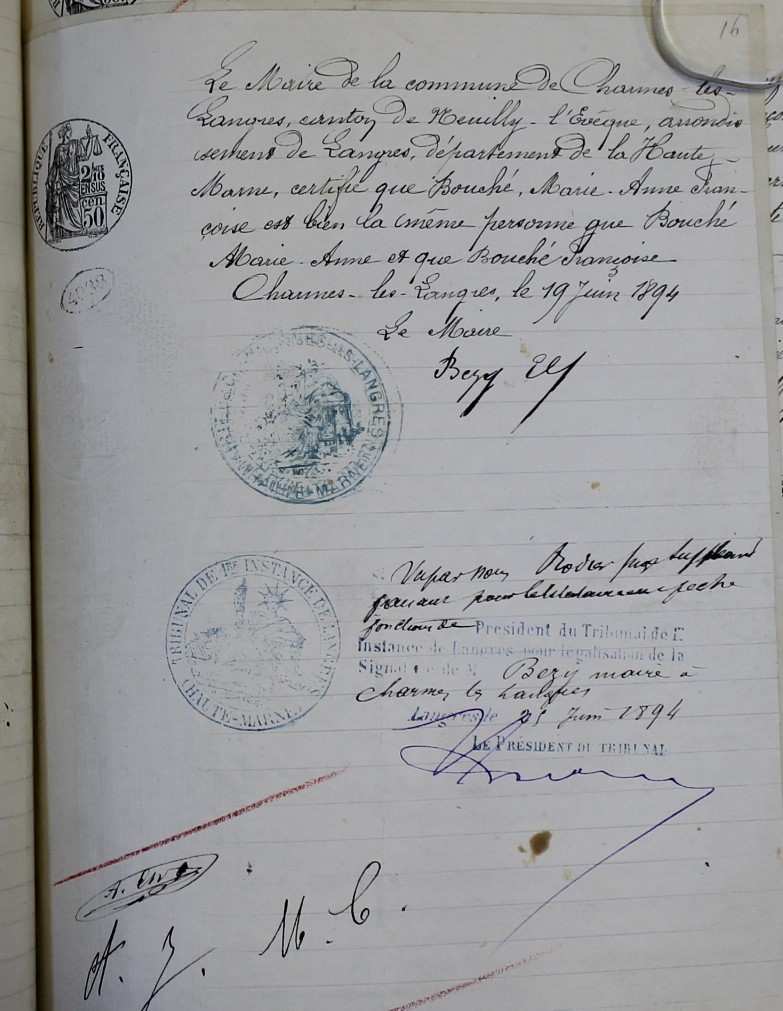 16
Le Maire de la commune de Charmes-les-
Langres, canton de Neuilly-l'Evêque, arrondis
sement de Langres, département de la Haute-
Marne, certifie que Bouché, Marie-Anne Fran-
çoise est bien la même personne que Bouché
Marie-Anne et que Bouché Françoise
Charmes-les-Langres, le 19 Juin 1894
Le Maire
Bezy
RÉPUBLIQUE FRANÇAISE
2/10 EN SUS
50 cen
4938
LANGRES
HAUTE-MARNE
TRIBUNAL DE 1RE INSTANCE DE LANGRES
HAUTE-MARNE
Vu par nous Rodier juge suppléant
fonctions de Président du Tribunal de 1re
Instance de Langres pour légalisation de la
Signature de M. Bezy maire à
Charmes les Langres
Langres le 21 Juin 1894
LE PRÉSIDENT DU TRIBUNAL
A. J. M. C.